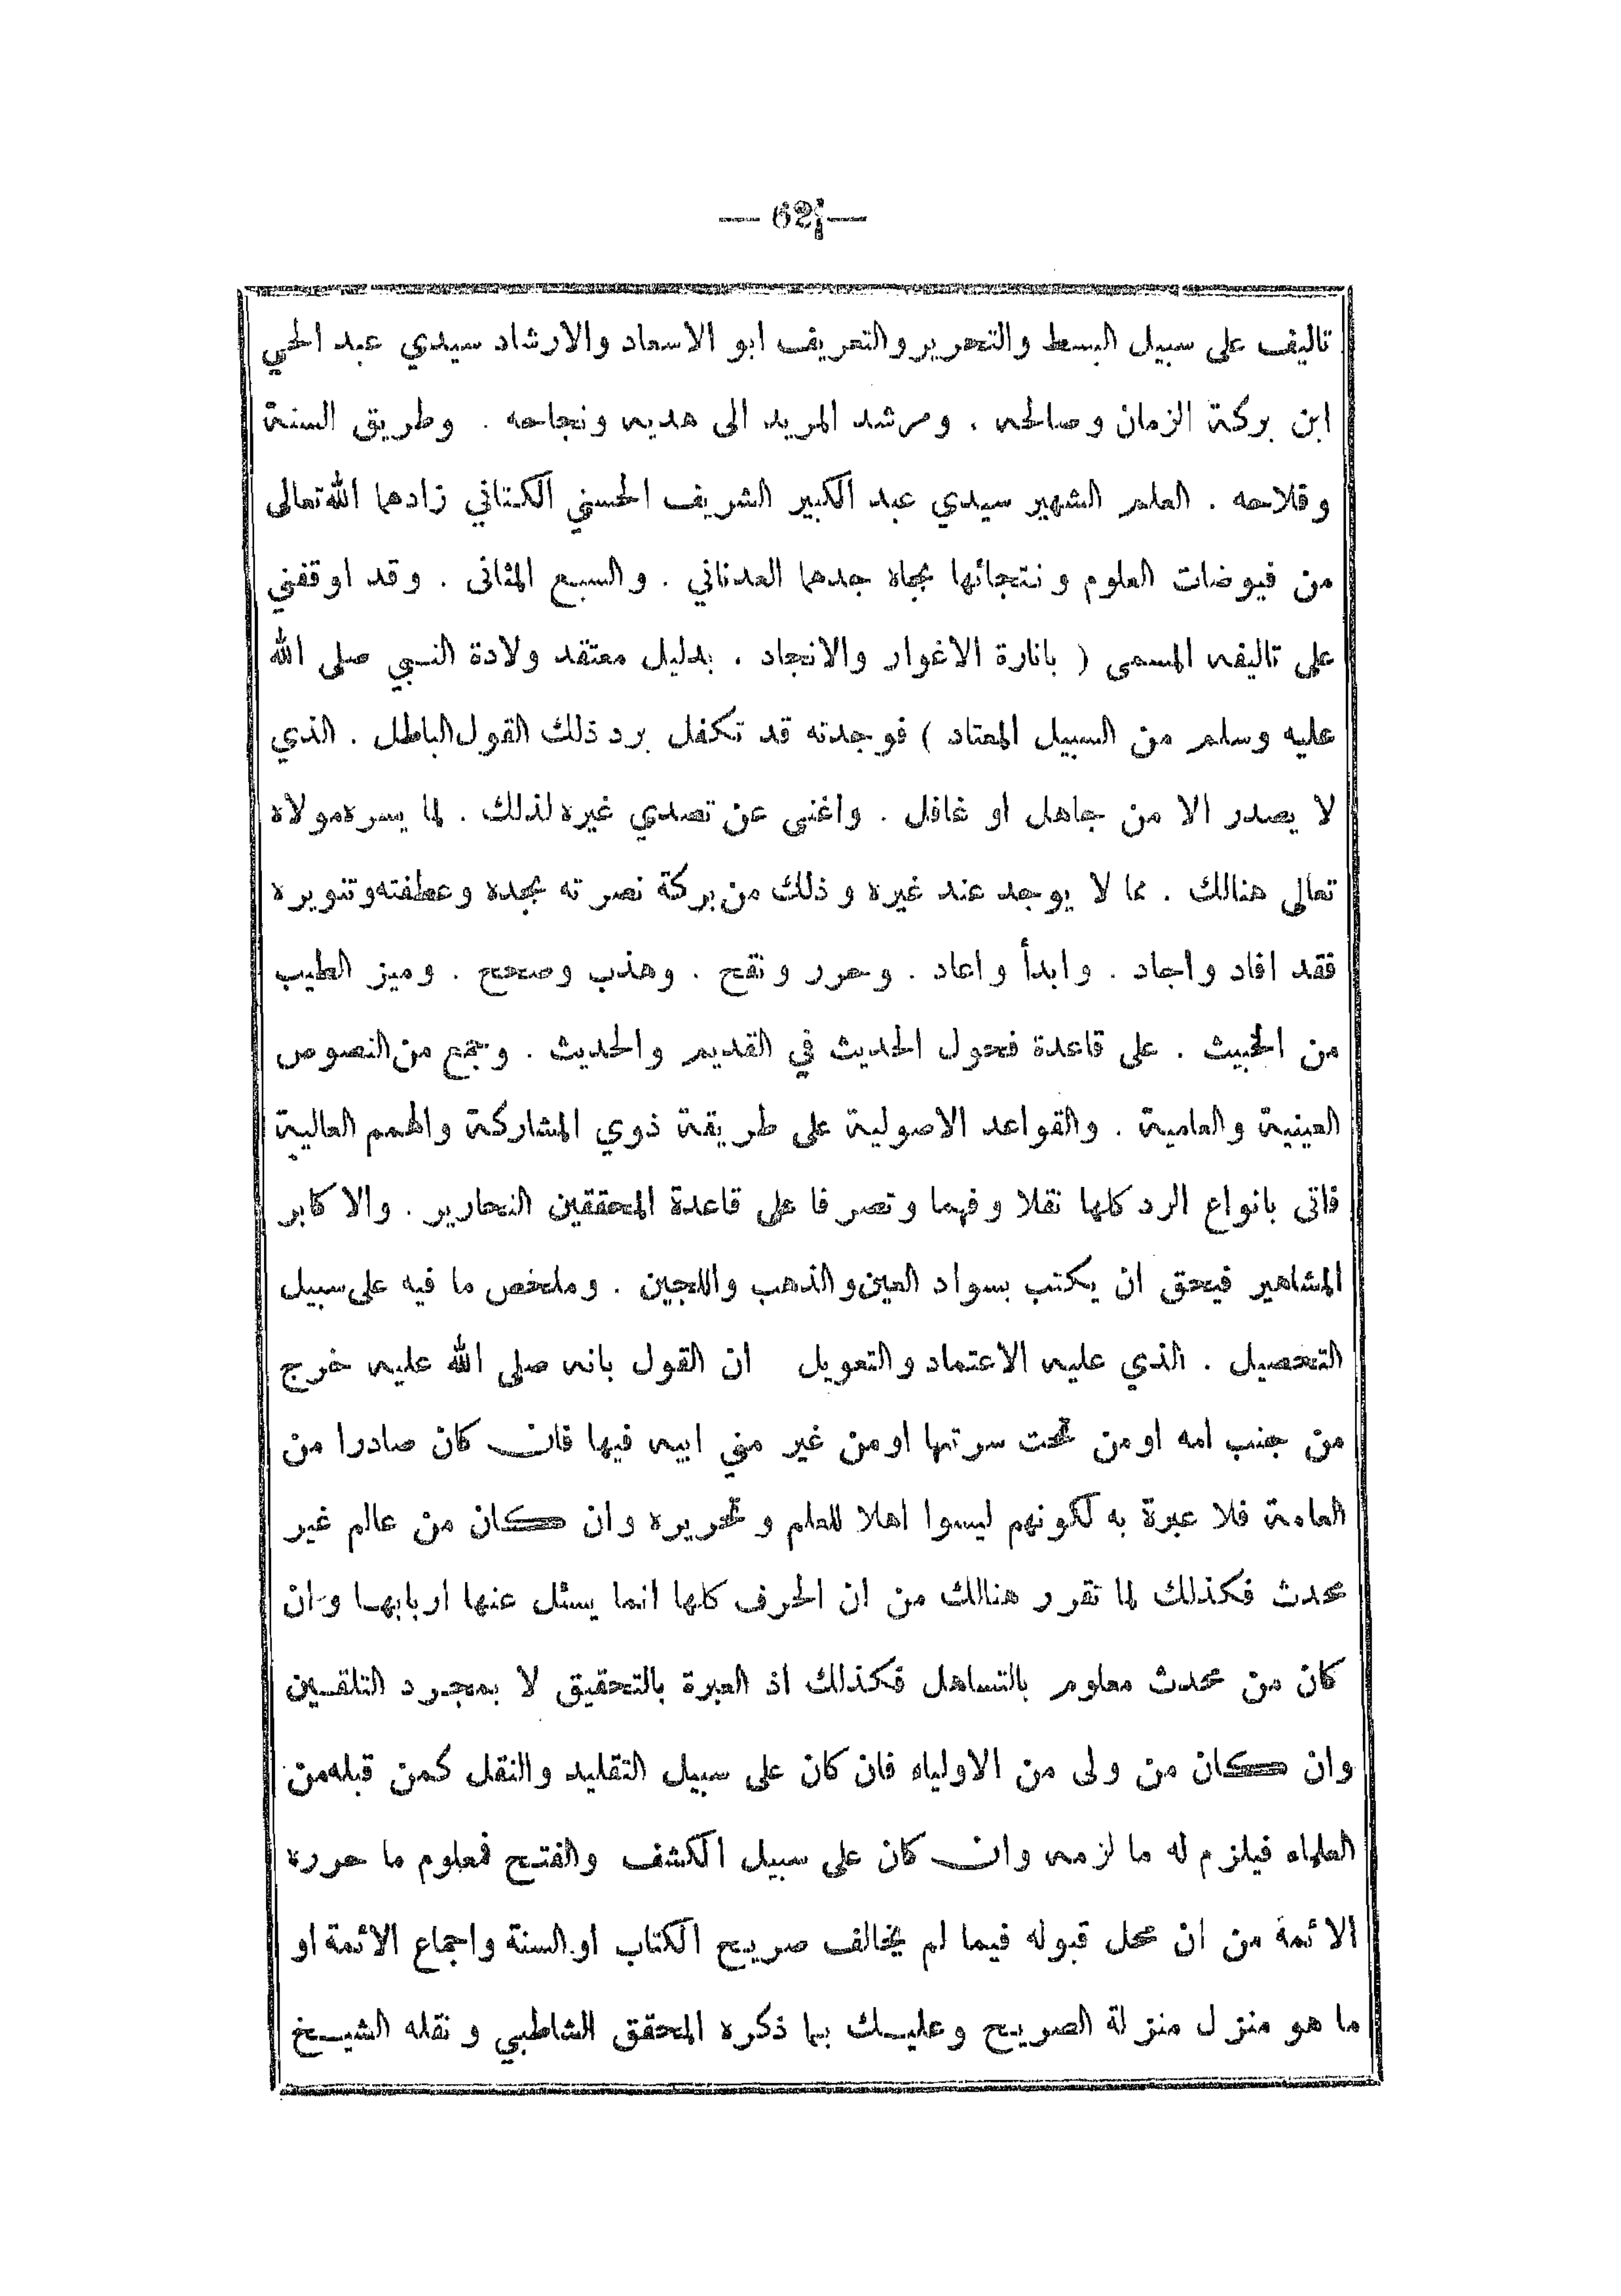 — 62 —
تاليف على سبيل البسط والتحرير والتعريف ابو الاسعاد والارشاد سيدي عبد الحي
ابن بركة الزمان وصالحه . ومرشد المريد الى هديه ونجاحه . وطريق السنة
وفلاحه . العلم الشهير سيدي عبد الكبير الشريف الحسني الكتاني زادهما الله تعالى
من فيوضات العلوم ونتجائها بجاه جدهما العدناني . والسبع المثانى . وقد اوقفني
على تاليفه المسمى ( بانارة الاغوار والانجاد . بدليل معتقد ولادة النبي صلى الله
عليه وسلم من السبيل المعتاد ) فوجدته قد تكفل برد ذلك القول الباطل . الذي
لا يصدر الا من جاهل او غافل . واغنى عن تصدي غيره لذلك . لما يسره مولاه
تعالى هنالك . مما لا يوجد عند غيره وذلك من بركة نصرته بجده وعطفته وتنويره
فقد افاد واجاد . وابدأ واعاد . وحرر ونقح . وهذب وصحح . وميز الطيب
من الخبيث . على قاعدة فحول الحديث في القديم والحديث . وجمع من النصوص
العينية والعامية . والقواعد الاصولية على طريقة ذوي المشاركة والهمم العالية
فاتى بانواع الرد كلها نقلا وفهما وتصرفا على قاعدة المحققين النحارير . والاكابر
المشاهير فيحق ان يكتب بسواد العين والذهب واللجين . وملخص ما فيه على سبيل
التحصيل . الذي عليه الاعتماد والتعويل ان القول بانه صلى الله عليه خرج
من جنب امه او من تحت سرتها او من غير مني ابيه فيها فان كان صادرا من
العامة فلا عبرة به لكونهم ليسوا اهلا للعلم وتحريره وان كان من عالم غير
محدث فكذلك لما تقرر هنالك من ان الحرف كلها انما يسئل عنها اربابها وان
كان من محدث معلوم بالتساهل فكذلك اذ العبرة بالتحقيق لا بمجرد التلقين
وان كان من ولى من الاولياء فان كان على سبيل التقليد والنقل كمن قبله من
العلماء فيلزم له ما لزمه وان كان على سبيل الكشف والفتح فمعلوم ما حرره
الائمة من ان محل قبوله فيما لم يخالف صريح الكتاب او السنة واجماع الائمة او
ما هو منزل منزلة الصريح وعليك بما ذكره المحقق الشاطبي ونقله الشيخ